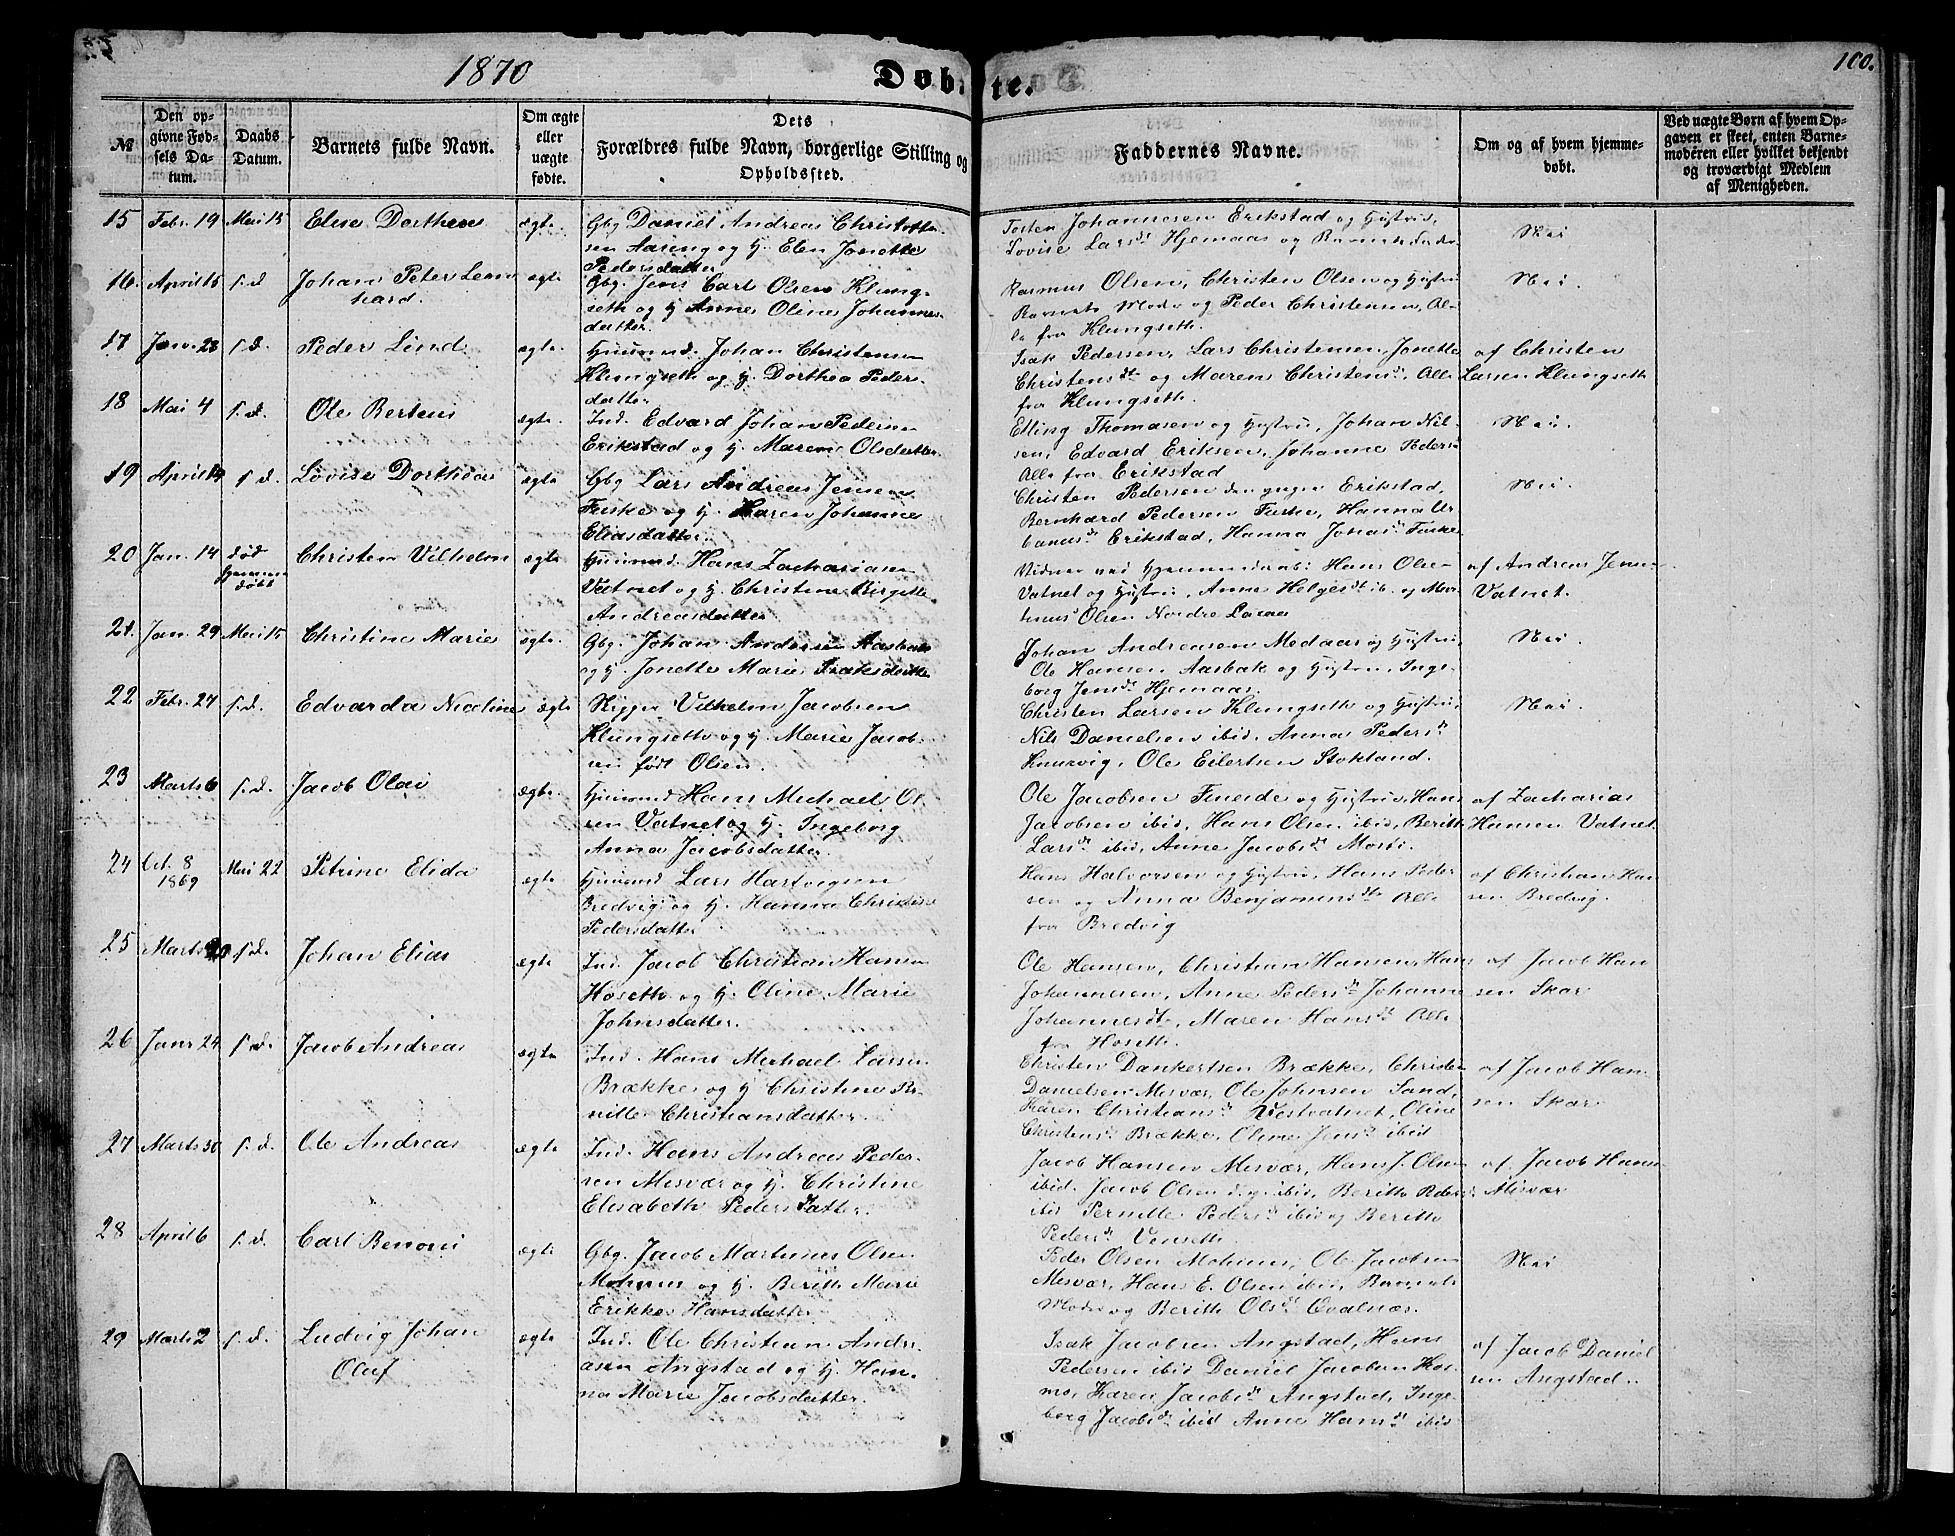 1870
Døbte.
100.
№
Den op-
givne Fød-
sels Da-
tum.
Daabs
Datum.
Barnets fulde Navn.
Om ægte
eller
uægte
fødte.
Dets
Forældres fulde Navn, borgerlige Stilling og
Opholdssted.
Faddernes Navne.
Om og af hvem hjemme-
døbt.
Ved uægte Børn af hvem Op-
gaven er skeet, enten Barne-
moderen eller hvilket bekjendt
og troværdigt Medlem
af Menigheden.
15 Febr. 19 Mai 15 Elen Dorthea ægte
Gbg Daniel Andreas Christoffer-
sen Aaseng og H. Elen Jonette
Pedersdatter
Tosten Johannesen Erikstad og Hustru,
Lovise Larsdt Hjemaas og Barnets Fader
Nei
16. April 15 s.d. Johan Peter Leon-
hard. ægte
Gbg. Jens Carl Olsen Klung-
seth og H. Anne Oline Johannes-
datter.
Rasmus Olsen, Christen Olsen og Hustru
Barnets Moder og Peder Christensen, Al-
le fra Klungseth.
Nei.
17 Jan. 23 s.d. Peder Lind ægte
Huusmd. Johan Christensen
Klungseth og H. Dorthea Peders-
datter
Isak Pedersen, Lars Christensen, Jonette
Christensdt og Maren Christensdt, Alle
fra Klungseth.
af Christen
Larsen Klungseth
18 Mai 4 s.d. Ole Bertens ægte.
Ind. Edvard Johan Pedersen
Erikstad og H. Maren Olsdatter
Elling Thomasen og Hustru, Johan Nil-
sen, Edvard Eriksen, Johanna Peders
Alle fra Erikstad
Nei.
19 April 14 s.d. Lovise Dorthea ægte
Gbg Lars Andreas Jensen
Fuske og H. Karen Johanne
Eliasdatter.
Christen Pedersen den yngre Erikstad,
Bernhard Pedersen Fuske, Hanna Ur-
banusdt Erikstad, Hanna Johasdt Fuske
Nei.
20 Jan. 14 død
Hjemme
døbt Christen Vilhelm ægte
Huusmd. Hans Zachariasen
Vatnet og H. Christine Birgitte
Andreasdatter
Vidner ved Hjemmedaab: Hans Olsen
Vatnet og Hustru, Anne Helgesdt ib. og Mor-
tinus Olsen Nordre
af Andreas Jensen
Vatnet.
21. Jan. 29 Mai 15 Christine Marie ægte.
Gbg. Johan Andersen Aasbak
og H. Jonette Marie Isaksdatter
Johan Andreasen Medaas og Hustru,
Ole Hansen Aasbak og Hustru, Inge-
borg Jensdt Hjemaas.
Nei.
22 Febr. 24 s.d. Edvarda Nicoline ægte
Skipper Vilhelm Jacobsen
Klungseth og H. Marie Jacob-
sen født Olsen.
Christen Larsen Klungseth og Hustru,
Nils Danielsen ibid, Anna Pedersdt
Knarvig, Ole Eilertsen Stokland.
Nei.
23 Marts 6 s.d. Jacob Olai ægte.
Huusmd Hans Michael Ol-
sen Vatnet og H. Ingeborg
Anna Jacobsdatter.
Ole Jacobsen Fineide og Hustru, Hans
Jacobsen ibid, Hans Olsen ibid, Berith
Larsdt ibid, Anne Jacobsdt
af Zacharias
Hansen Vatnet.
24 Oct. 8
1869 Mai 22 Petrine Elida ægte
Huusmd Lars Hartvigsen
Bredvig og H. Hanna Christine
Pedersdatter
Hans Halvorsen og Hustru, Hans Peder-
sen og Anna Benjaminsdt Alle
fra Bredvig
af Christian Han-
sen Bredvig.
25 Marts s.d. Johan Elias ægte
Ind. Jacob Christian Hansen
Hoseth og H. Oline Marie
Johnsdatter.
Ole Hansen, Christian Hansen, Hans
Johannesen, Anne Pedersdt Johanna
Johannesdt, Maren Hansdt Alle
fra Hoseth.
af Jacob Han-
sen Skar
26 Janr 24 s.d. Jacob Andreas ægte
Ind. Hans Michael Larsen
Brække og H. Christine Per-
nille Christiansdatter
Christen Dankertsen Brække, Christen
Danielsen Misvær, Ole Johnsen Sand,
Karen Christiansdt Vestvatnet, Oline
Christensdt Brække, Oline Jensdt ibid
af Jacob Han-
sen Skar
27 Marts 30 s.d. Ole Andreas ægte
Ind. Hans Andreas Peder-
sen Misvær og H. Christine
Elisabeth Pedersdatter.
Jacob Hansen Misvær, Hans J. Olsen
ibid. Jacob Olsen d.y. ibid, Berith Pedersdt
ibid Pernille Pedersdt ibid og Berith
Pedersdt Vensett.
af Jacob Hansen
Misvær
28 April 6 s.d. Carl Benoni ægte
Gbg. Jacob Martinus Olsen
Mohuus og H. Berith Marie
Erikke Hansdatter
Peder Olsen Mohuus, Ole Jacobsen
Misvær, Hans E. Olsen ibid, Barnets
Moder og Berith Olsdt Qvalnæs.
Nei
29 Marts 2 s.d. Ludvig Johan
Oluf ægte
Ind. Ole Christian Andre-
asen Angstad og H. Han-
na Marie Jacobsdatter.
Isak Jacobsen Angstad, Hans
Pedersen ibid Daniel Jacobsen Kos-
mo, Karen Jacobsdt Angstad, Inge-
borg Jacobsdt ibid Anne Hansdt ibid
af Jacob Daniel-
sen Angstad.